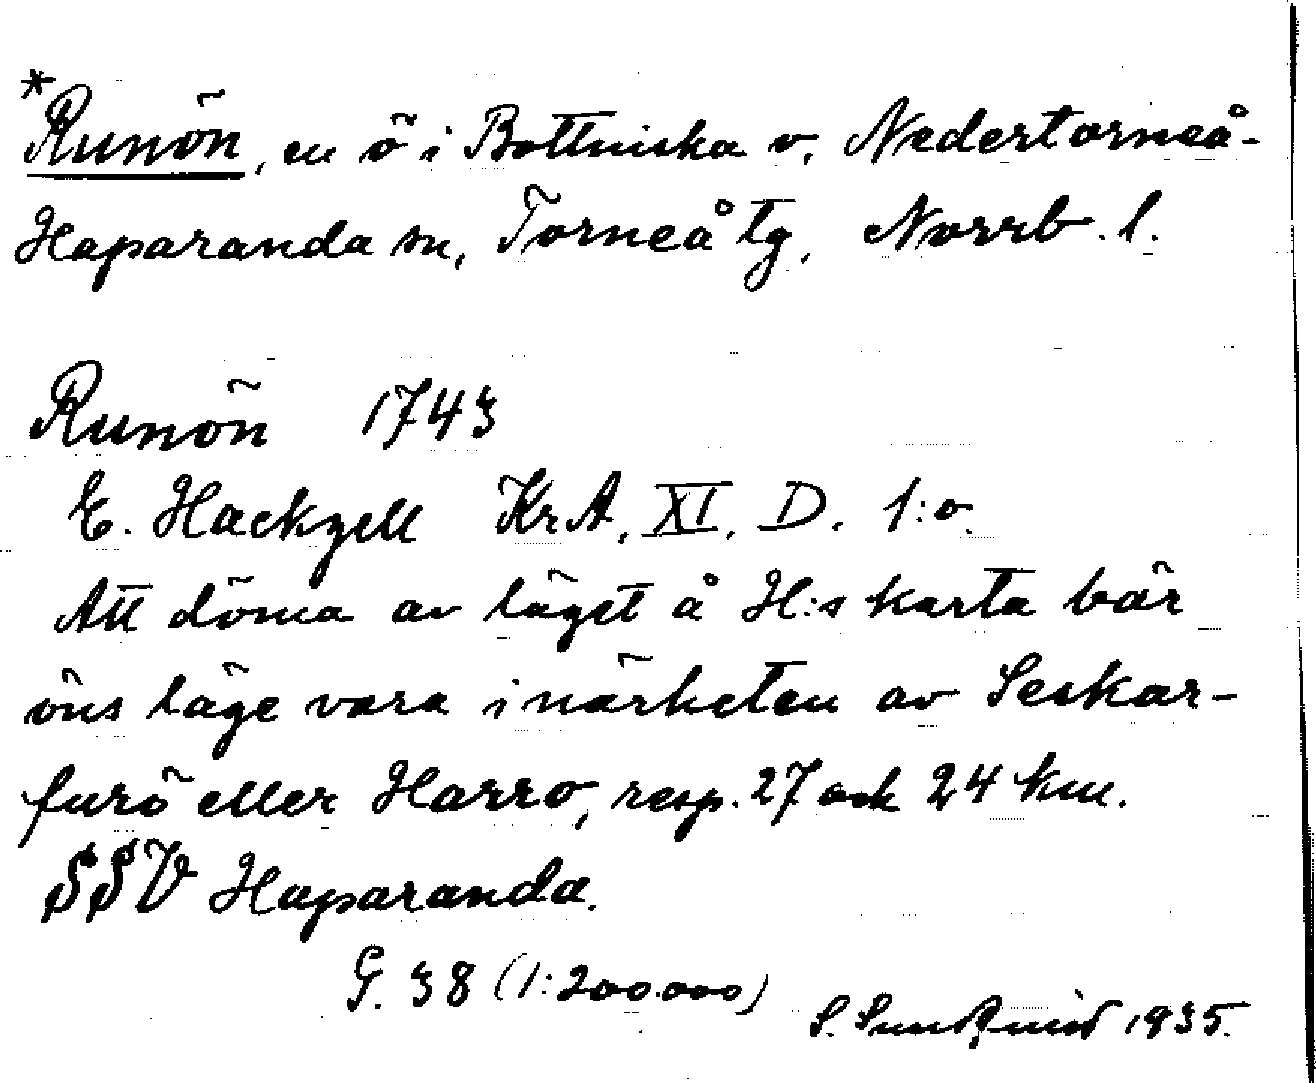 *Runön, en ö i Bottniska v, Nedertorneå-
Haparanda sn, Torneå tg, Norrb. l.
Runön 1743
E. Hackzell KrA, XI, D. 1:o.
Att döma av läget å H:s karta bör
öns läge vara i närheten av Seskar-
furö eller Harro, resp. 27 och 24 km.
SSV Haparanda.
G. 38 (1:200.000)
S. Sundqvist 1935.